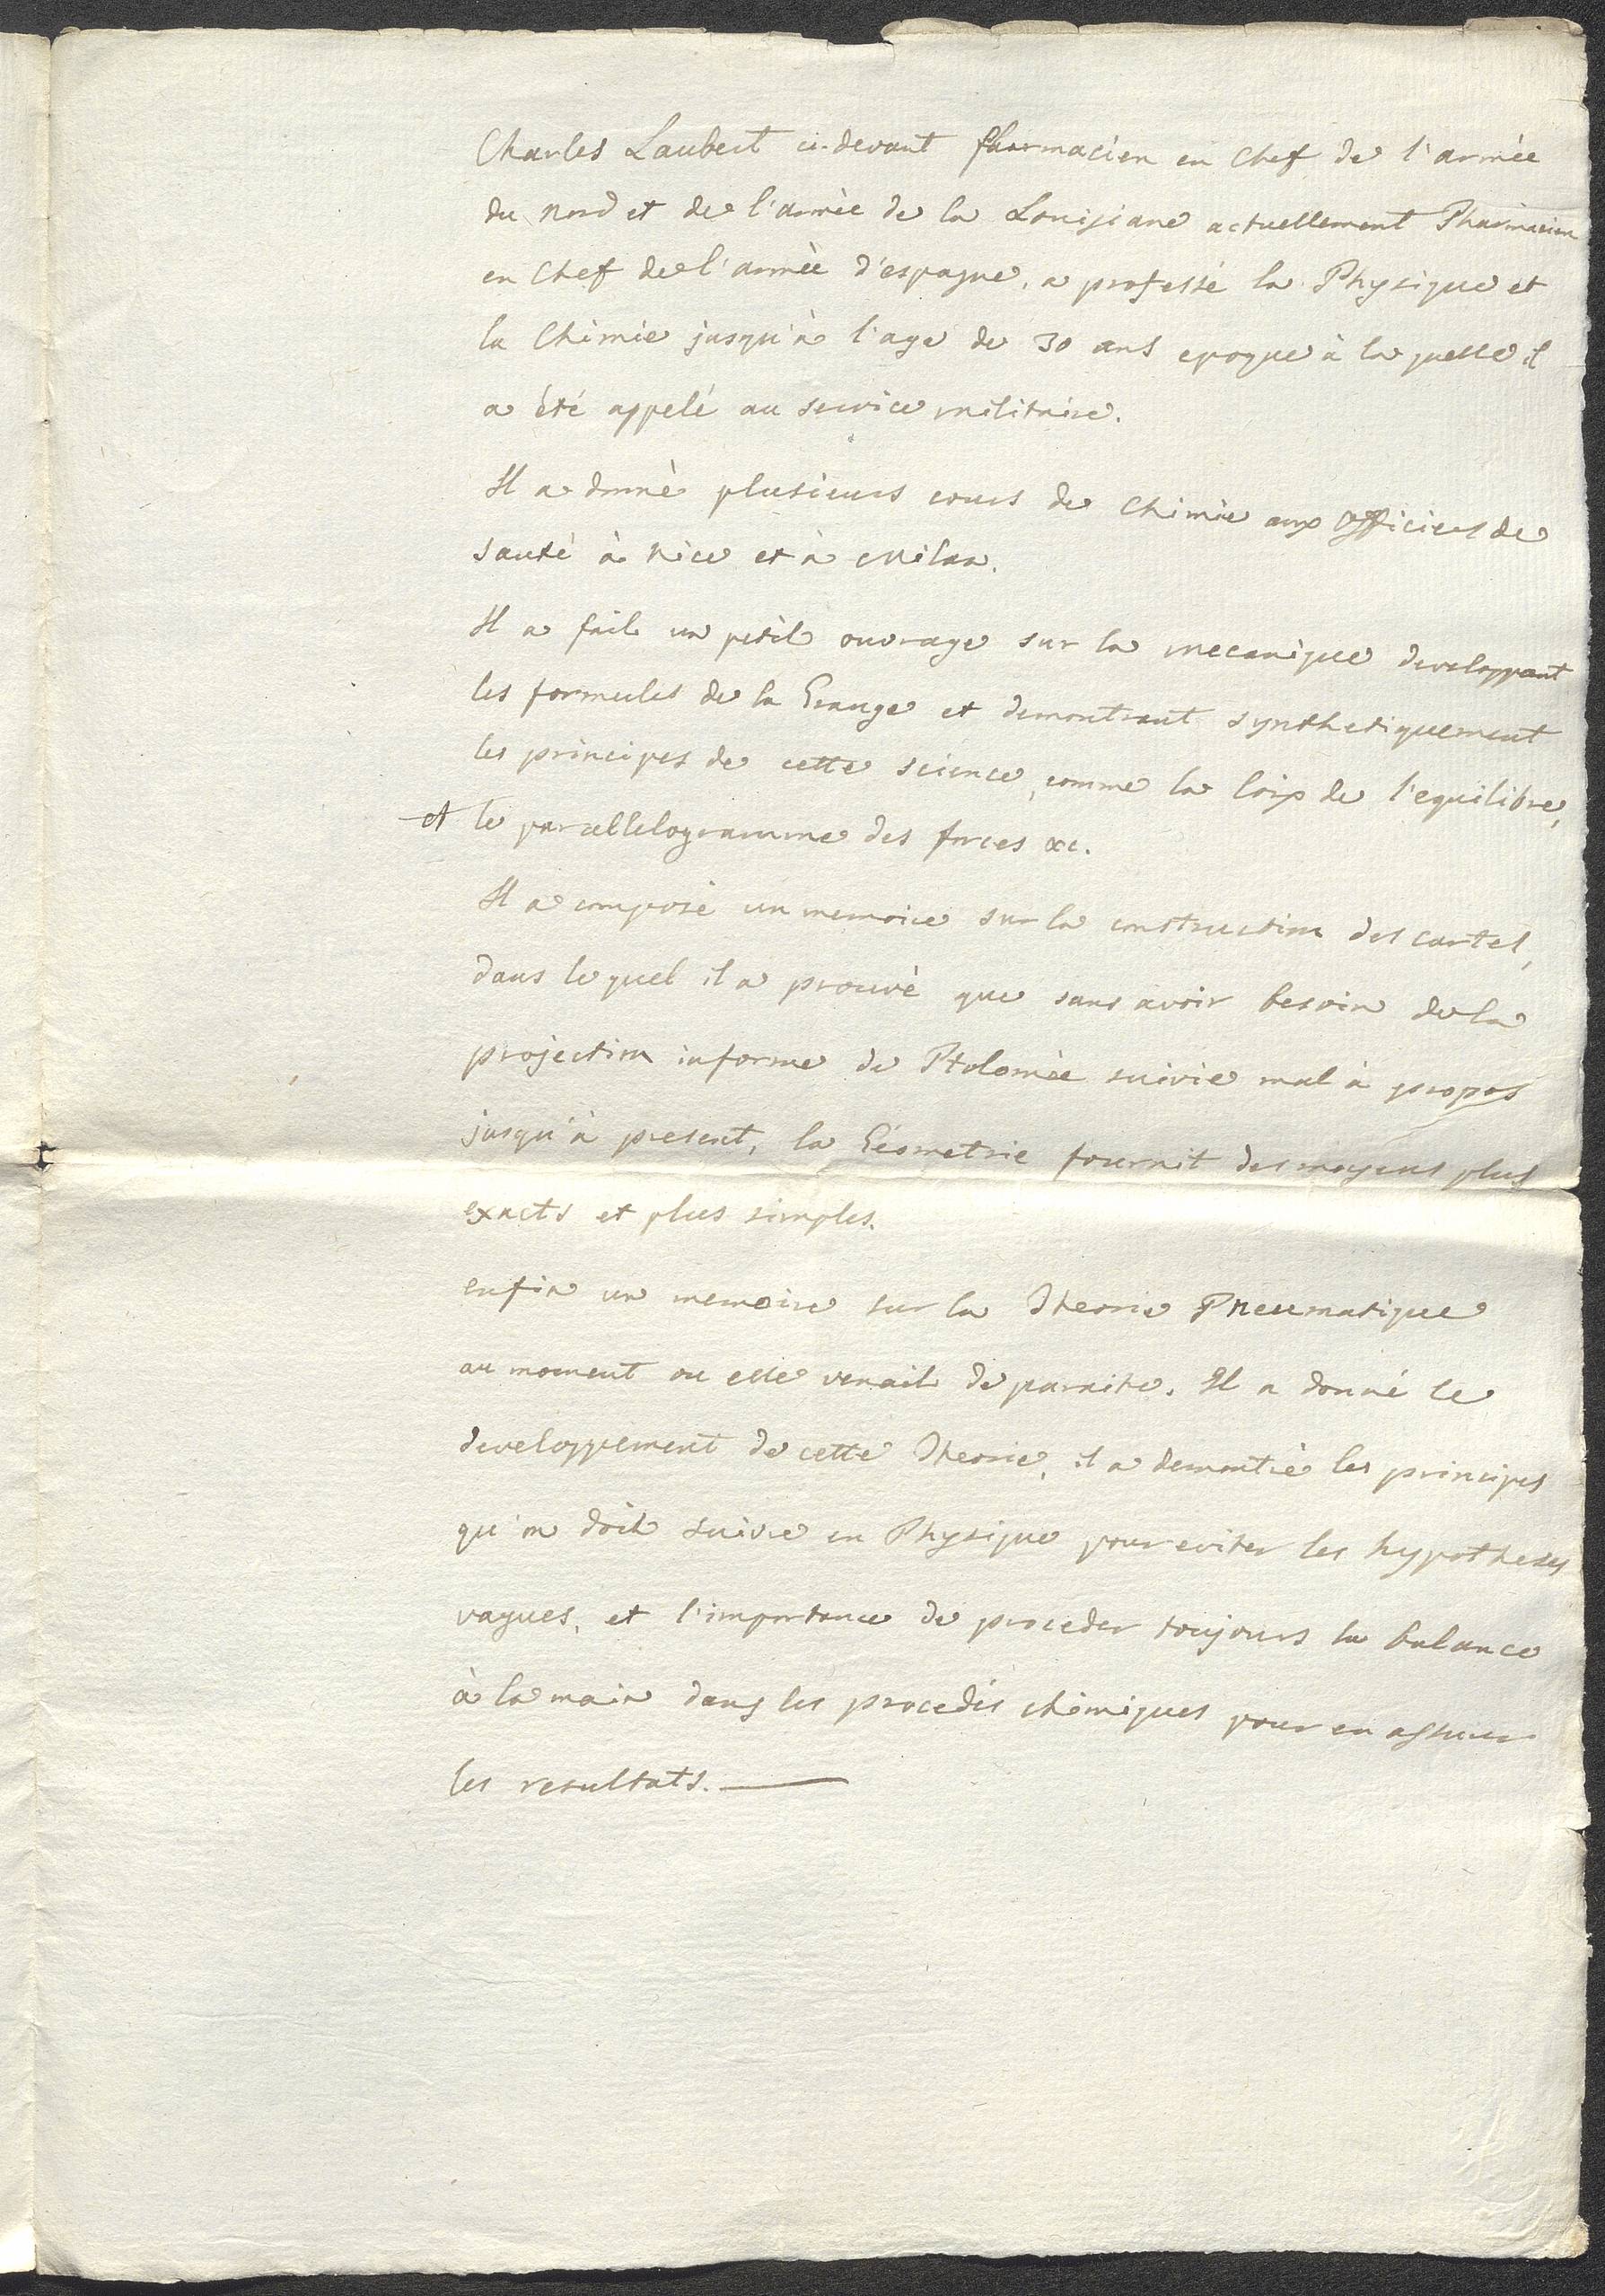 Charles Laubert ci-devant Pharmacien en Chef de l'armée
du Nord et de l'armèe de la Louisiane actuellement Pharmacien
en Chef de l'armèe d'espagne, a professé la Physique et
la Chimie jusqu'à l'age de 30 ans epoque à la quelle il
a èté appelé au service militaire.
Il a donnè plusieurs cours de Chimie aux Officiers de
santè à Nice et à Milan.
Il a fait un petit ouvrage sur la mecanique developpant
les formules de la Grange et demontrant synthetiquement
les principes de cette science, comme la loix de l'equilibre,
et le parallelogramme des forces &c.
Il a composè un memoire sur la construction des cartes,
dans le quel il a prouvè que sans avoir besoin de la
projection informe de Ptolomèe suivie mal à propos
jusqu'à present, la Géometrie fournit des moyens plus
exacts et plus simples.
enfin un memoire sur la Theorie Pneumatique
au moment ou elle venait de paraitre. Il a donné le
developpement de cette Theorie, il a demontrè les principes
qu'on doit suivre en Physique pour eviter les hypotheses
vagues, et l'importance de proceder toujours la balance
à la main dans les procedés chimiques pour en assurer
les resultats.